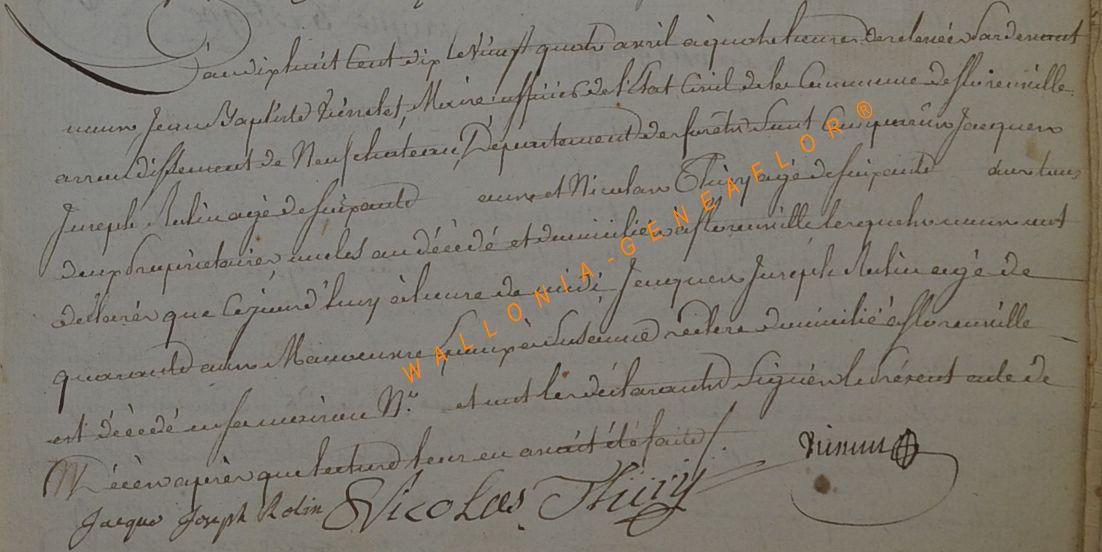 L'an dix huit cent dix le vingt quatre avril à quatre heures de relevée pardevant
nous Jean Baptiste maire officier de l'Etat Civil de la Commune de florenville
arrondissement de Neufchateau, Département des forêts sont comparus Jacques
Joseph Rolin agé de soixante ans et Nicolas Thiry agé de soixante ans tous
deux propriétaires oncles au décédé et domiciliés à florenville lesquels nous ont
déclarés que cejourd'huy à heure de midi Jacques Joseph Rolin agé de
quarante ans Manoeuvre Susanne domicilié à florenville
est décèdé en sa maison N.° et ont les déclarants signés le présent acte de
Décès après que lecture leur en avoit été faite /.
Jacque Joseph Rolin Nicolas Thiry
WALLONIA-GENEAFLOR®